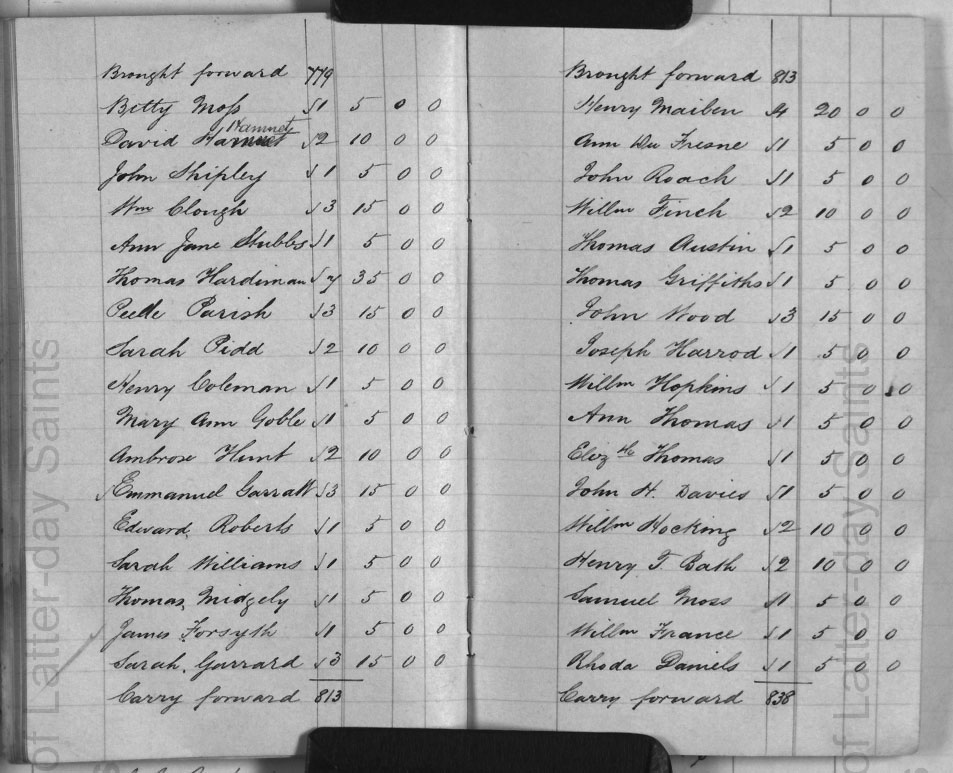 Brought forward 779
Betty Moss √1 5 0 0
Hamnet
David Hamnet √2 10 0 0
John Shipley √1 5 0 0
Wm Clough √3 15 0 0
Ann Jane Stubbs √1 5 0 0
Thomas Hardiman √7 35 0 0
Parish √3 15 0 0
Sarah Pidd √2 10 0 0
Henry Coleman √1 5 0 0
Mary Ann Goble √1 5 0 0
Ambrose Hunt √2 10 0 0
Emmanuel Garratt √3 15 0 0
Edward Roberts √1 5 0 0
Sarah Williams √1 5 0 0
Thomas Midgely √1 5 0 0
James Forsyth √1 5 0 0
Sarah Garrard √3 15 0 0
Carry forward 813
Brought forward 813
Henry Maiben √4 20 0 0
Ann Du Fresne √1 5 0 0
John Roach √1 5 0 0
Willm Finch √2 10 0 0
Thomas Austin √1 5 0 0
Thomas Griffiths √1 5 0 0
John Wood √3 15 0 0
Joseph Harrod √1 5 0 0
Willm Hopkins √1 5 0 0
Ann Thomas √1 5 0 0
Elizth Thomas √1 5 0 0
John H. Davies √1 5 0 0
Willm Hocking √2 10 0 0
Henry T. Bath √2 10 0 0
Samuel Moss √1 5 0 0
Willm France √1 5 0 0
Rhoda Daniels √1 5 0 0
Carry forward 838
of Latter-day Saints
of Latter-day Saints